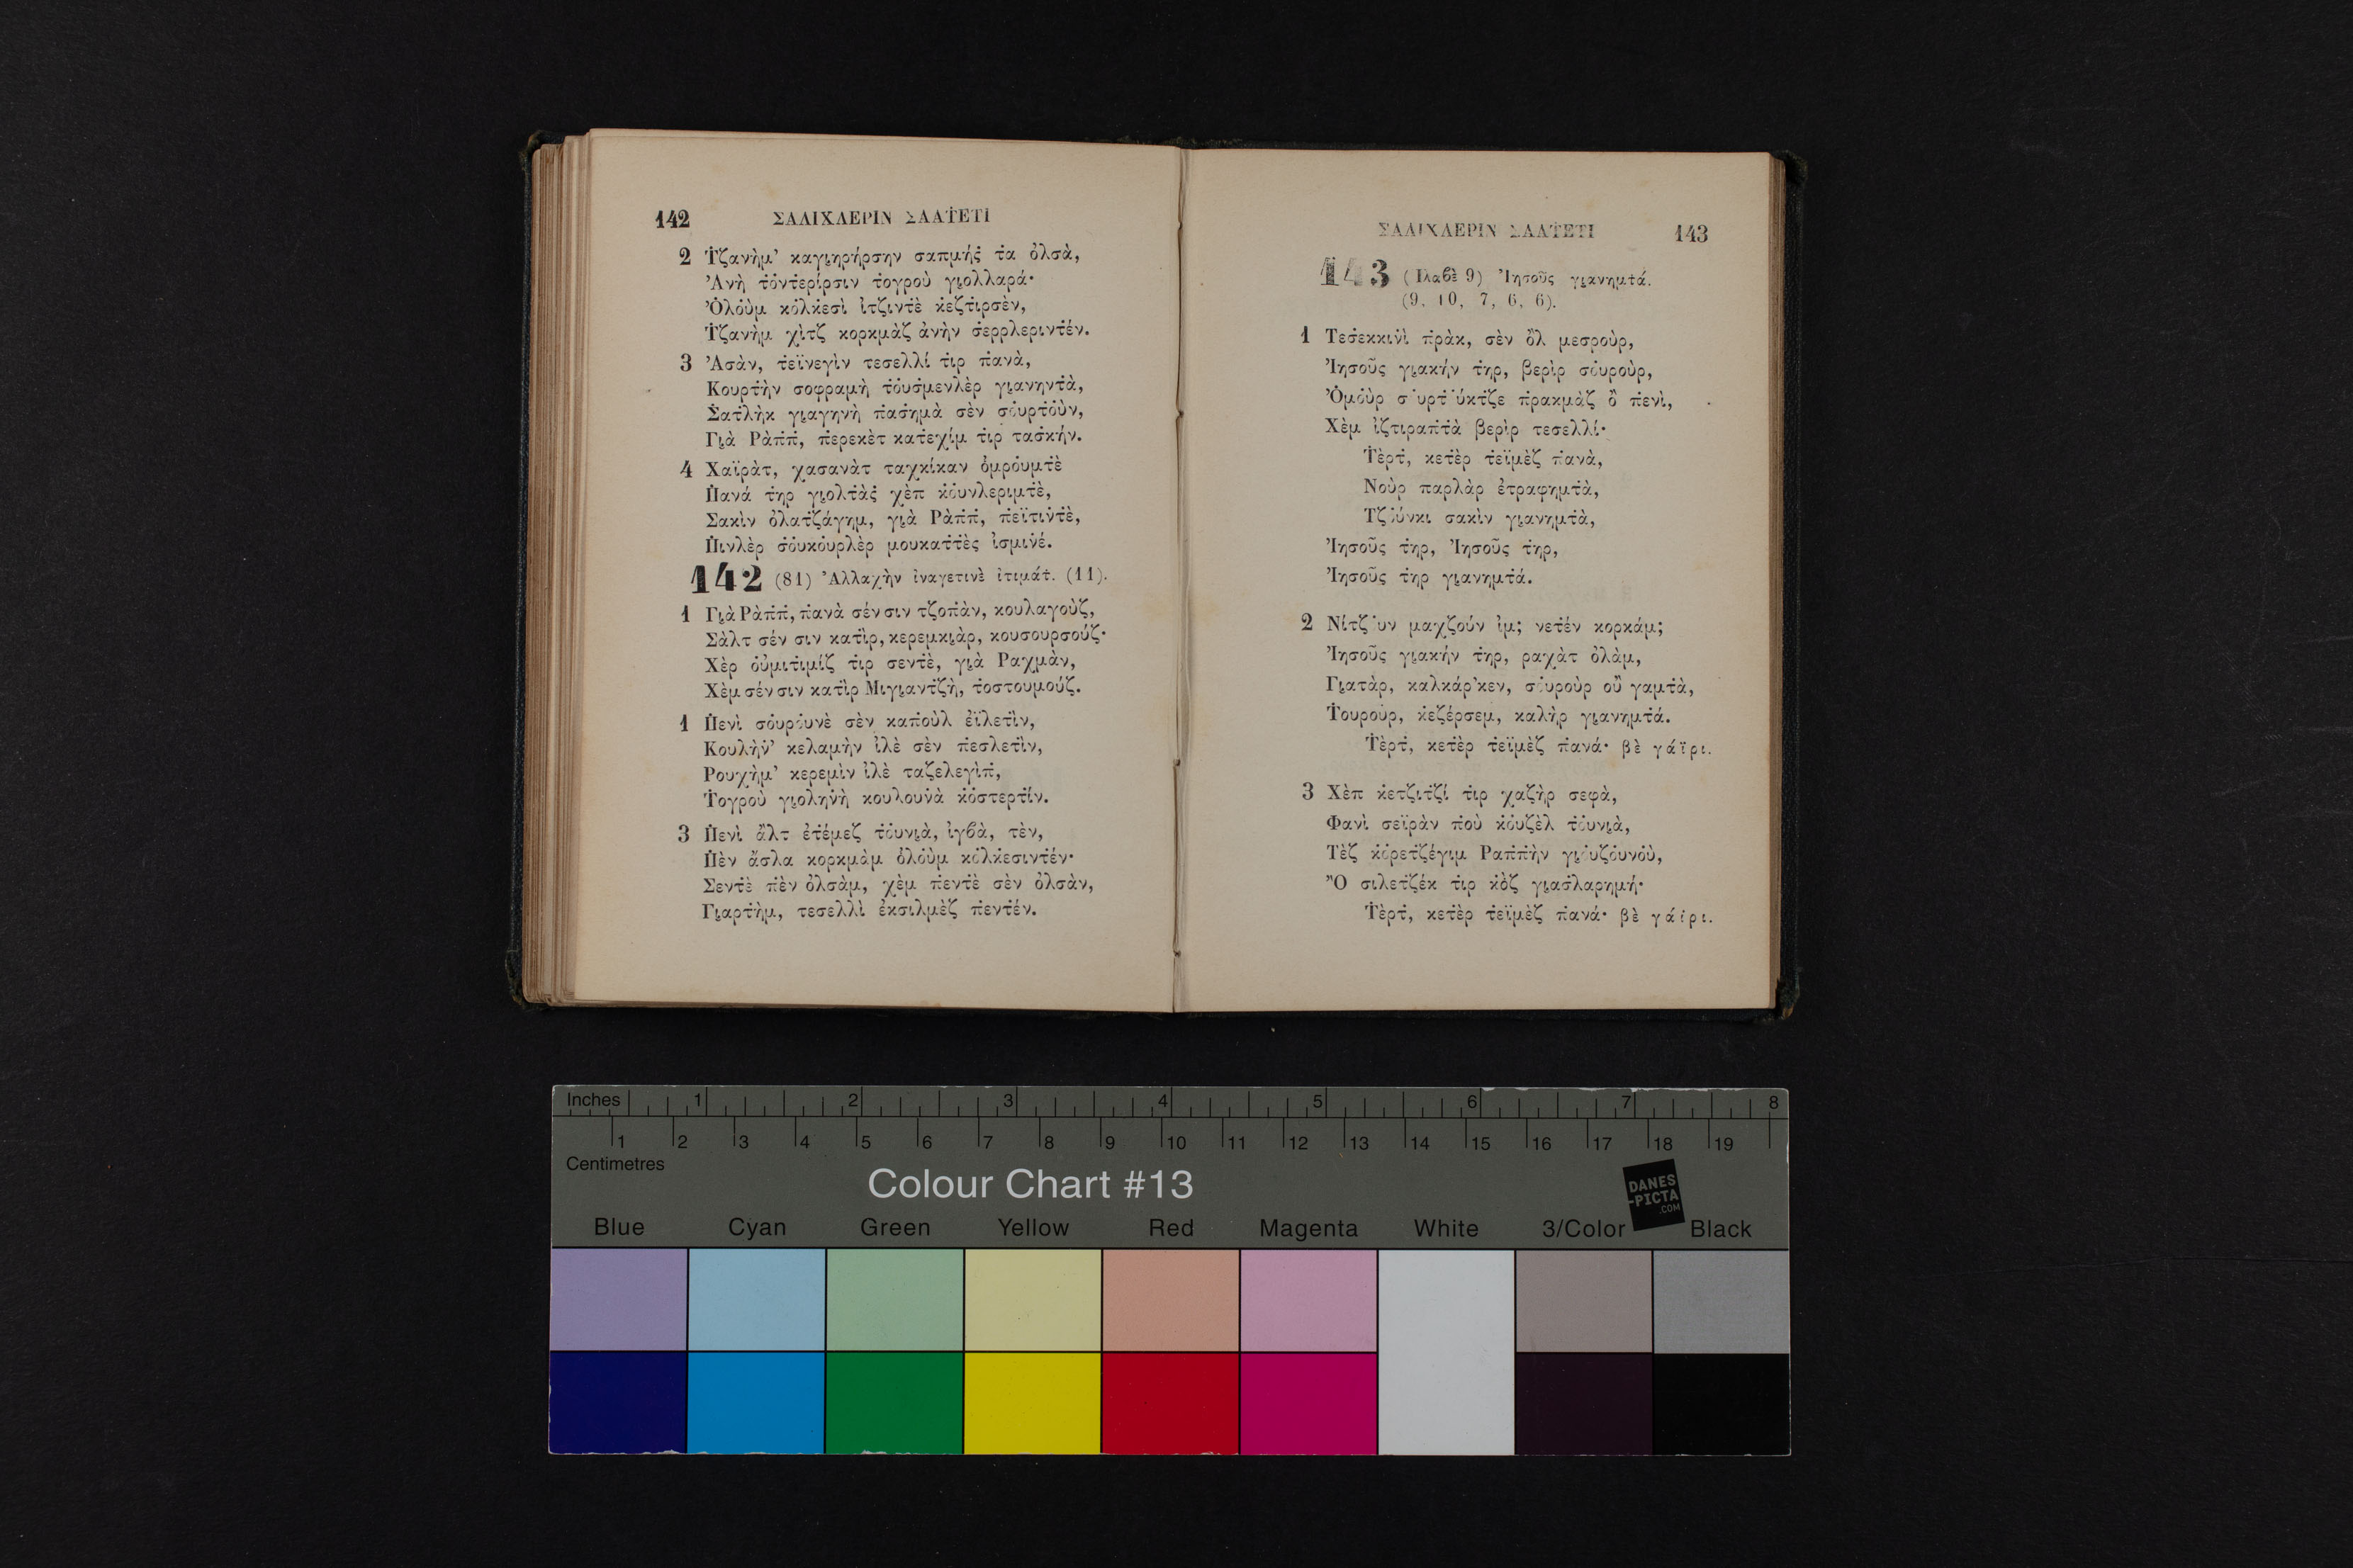 142 ΣΑΛΙΧΛΕΡΙΝ ΣΑΑΤ̇ΕΤΙ
2 Τ̇ζανὴμ' καγι̭ηρήρσην σαπμής̇ τ̇α ὀλσὰ,
Ἀνὴ τ̇όντερίρσιν τ̇ογροὺ γι̭ολλαρά·
Ὀλοὺμ κόλκεσὶ ἰτζιντὲ κ̇εζτιρσὲν,
Τ̇ζανὴμ χὶτζ κορκμὰζ ἀνὴν σ̇ερρλεριντέν.
3 Ἀσὰν, τ̇εϊνεγὶν τεσελλί τ̇ιρ π̇ανὰ,
Κουρτὴν σοφραμὴ τ̇ουσ̇μενλὲρ γι̭ανηντὰ,
Σ̇ατ̇λὴκ γι̭αγηνὴ π̇ασ̇ημὰ σὲν σουρτοὺν,
Γι̭ὰ Ρὰπ̇π̇, π̇ερεκὲτ κατ̇εχίμ τ̇ιρ τασ̇κήν.
4 Χαϊρὰτ, χασανὰτ ταχκίκαν ὀμρουμτ̇ὲ
Π̇ανά τ̇ηρ γι̭ολτ̇ὰς̇ χὲπ κ̇ουνλεριμτ̇ὲ,
Σακὶν ὀλατζάγημ, γι̭ὰ Ρὰπ̇π̇, π̇εϊτιντ̇ὲ,
Π̇ινλὲρ σ̇ουκ̇ουρλὲρ μουκατ̇τ̇ὲς ἰσμινέ.
142 (81) Ἀλλαχὴν ἰναγετινὲ ἰτιμάτ̇. (11).
1 Γι̭ὰ Ρὰπ̇π̇, π̇ανὰ σέν σιν τζοπ̇ὰν, κουλαγοὺζ,
Σὰλτ σέν σιν κατ̇ὶρ, κερεμκι̭ὰρ, κουσουρσούζ·
Χὲρ οὐμιτ̇ιμίζ τ̇ιρ σεντ̇ὲ, γι̭ὰ Ραχμὰν,
Χὲμ σέν σιν κατ̇ὶρ Μιγι̭αντζὴ, τ̇οστουμούζ.
1 Π̇ενὶ σ̇ουρουνὲ σὲν καπ̇οὺλ ἐϊλετ̇ὶν,
Κουλὴν' κελαμὴν ἰλὲ σὲν π̇εσλετ̇ὶν,
Ρουχὴμ' κερεμὶν ἰλὲ ταζελεγὶπ̇,
Τ̇ογροὺ γι̭οληνὴ κουλουνὰ κ̇όστερτ̇ίν.
3 Π̇ενὶ ἂλτ ἐτ̇έμεζ τ̇ουνι̭ὰ, ἰγβὰ, τὲν,
Π̇ὲν ἄσλα κορκμὰμ ὀλοὺμ κόλκ̇εσιντ̇έν·
Σεντ̇ὲ π̇ὲν ὀλσὰμ, χὲμ π̇εντ̇ὲ σὲν ὀλσὰν,
Γι̭αρτ̇ὴμ, τεσελλὶ ἐκσιλμὲζ π̇εντ̇έν.
ΣΑΛΙΧΛΕΡΙΝ ΣΑΑΤ̇ΕΤΙ 143
143 (Ιλαβὲ 9) Ἰησοῦς γι̭ανημτ̇ά.
(9, 10, 7, 6, 6).
1 Τεσ̇εκκινὶ π̇ρὰκ, σὲν ὂλ μεσροὺρ,
Ἰησοῦς γι̭ακήν τ̇ηρ, βερὶρ σουροὺρ,
Ὀμοὺρ σ υρτ ύκτζε π̇ρακμὰζ ὂ π̇ενὶ,
Χὲμ ἰζτιραπτ̇ὰ βερὶρ τεσελλί·
Τ̇ὲρτ̇, κετ̇ὲρ τ̇εϊμὲζ π̇ανὰ,
Νοὺρ παρλὰρ ἐτραφημτ̇ὰ,
Τζούνκι σακὶν γι̭ανημτ̇ὰ,
Ἰησοῦς τ̇ηρ, Ἰησοῦς τ̇ηρ,
Ἰησοῦς τ̇ηρ γι̭ανημτ̇ά.
2 Νίτζ υν μαχζούν ἰμ; νετ̇έν κορκάμ;
Ἰησοῦς γι̭ακήν τ̇ηρ, ραχὰτ ὀλὰμ,
Γι̭ατὰρ, καλκάρ'κεν, σουροὺρ οὒ γαμτ̇ὰ,
Τ̇ουροὺρ, κ̇εζέρσεμ, καλὴρ γι̭ανημτ̇ά.
Τ̇ὲρτ̇, κετ̇ὲρ τ̇εϊμὲζ π̇ανά· βὲ γάϊρι.
3 Χὲπ κ̇ετζιτζί τ̇ιρ χαζὴρ σεφὰ,
Φανὶ σεϊρὰν π̇οὺ κ̇ουζὲλ τ̇ουνι̭ὰ,
Τὲζ κ̇ορετζέγιμ Ραπ̇π̇ὴν γι̭ουζουνοὺ,
Ὂ σιλετζέκ τ̇ιρ κ̇ὸζ γι̭ασ̇λαρημή·
Τ̇ὲρτ̇, κετ̇ὲρ τ̇εϊμὲζ π̇ανά· βὲ γάϊρι.
Inches 1 2 3 4 5 6 7 8
1 2 3 4 5 6 7 8 9 10 11 12 13 14 15 16 17 18 19
Centimetres
Colour Chart #13
DANES
-PICTA
.COM
Blue Cyan Green Yellow Red Magenta White 3/Color Black